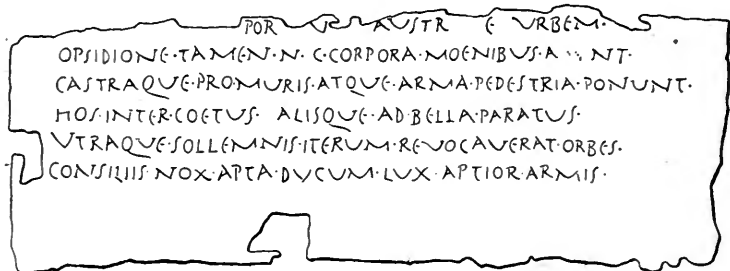 POR AUSTR E URBEM·
OPSIDIONE·TAMEN·N C·CORPORA·MOENIBUS·A NT·
CASTRAQUE·PRO·MURIS·ATQUE·ARMA·PEDESTRIA·PONUNT·
HOS·INTER·COETUS· ALISQUE·AD·BELLA·PARATUS·
UTRAQUE·SOLLEMNIS·ITERUM·REVOCAVERAT·ORBES·
CONSILIIS·NOX·APTA·DUCUM·LUX·APTIOR·ARMIS·